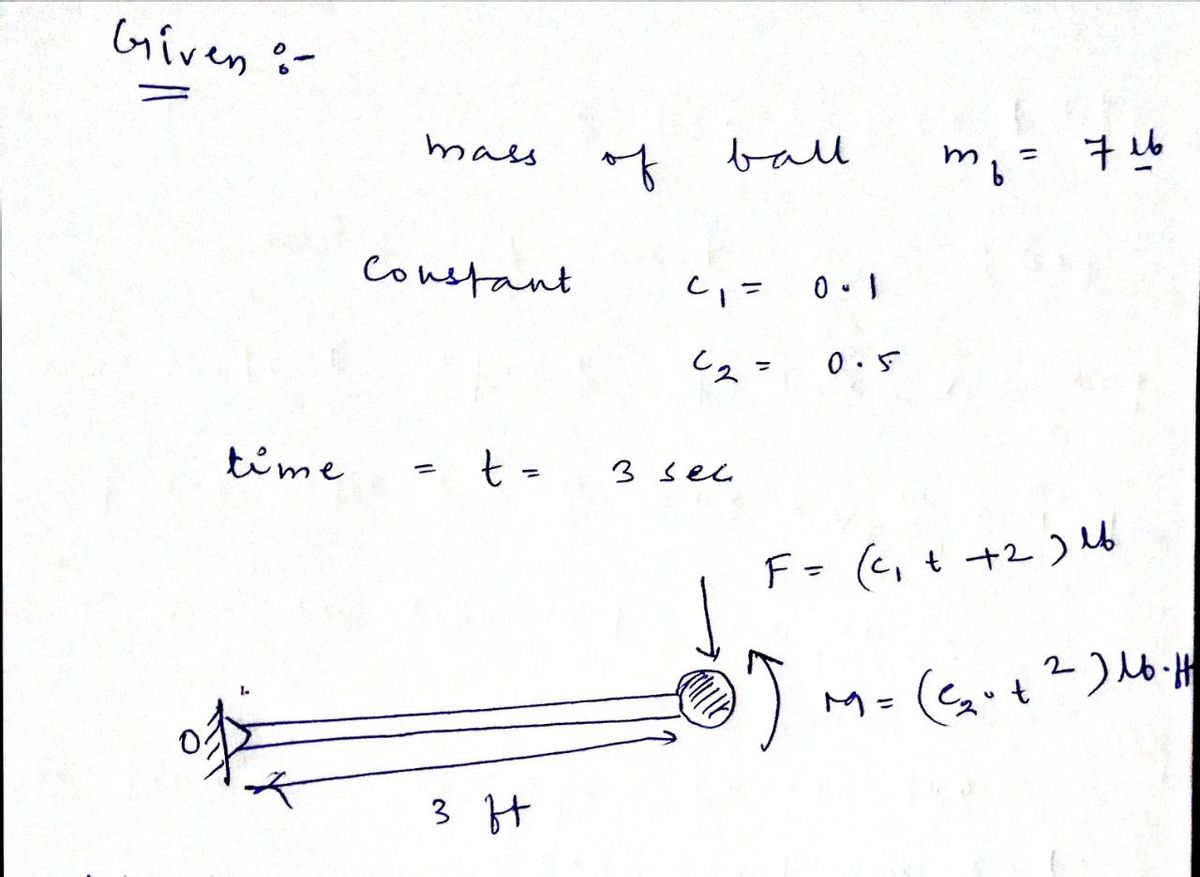 Given :-
mass of ball m_b = 7 lb
constant c₁ = 0.1
c₂ = 0.5
time = t = 3 sec
F = (c₁ t + 2) lb
M = (c₂ · t²) lb·ft
O
3 ft